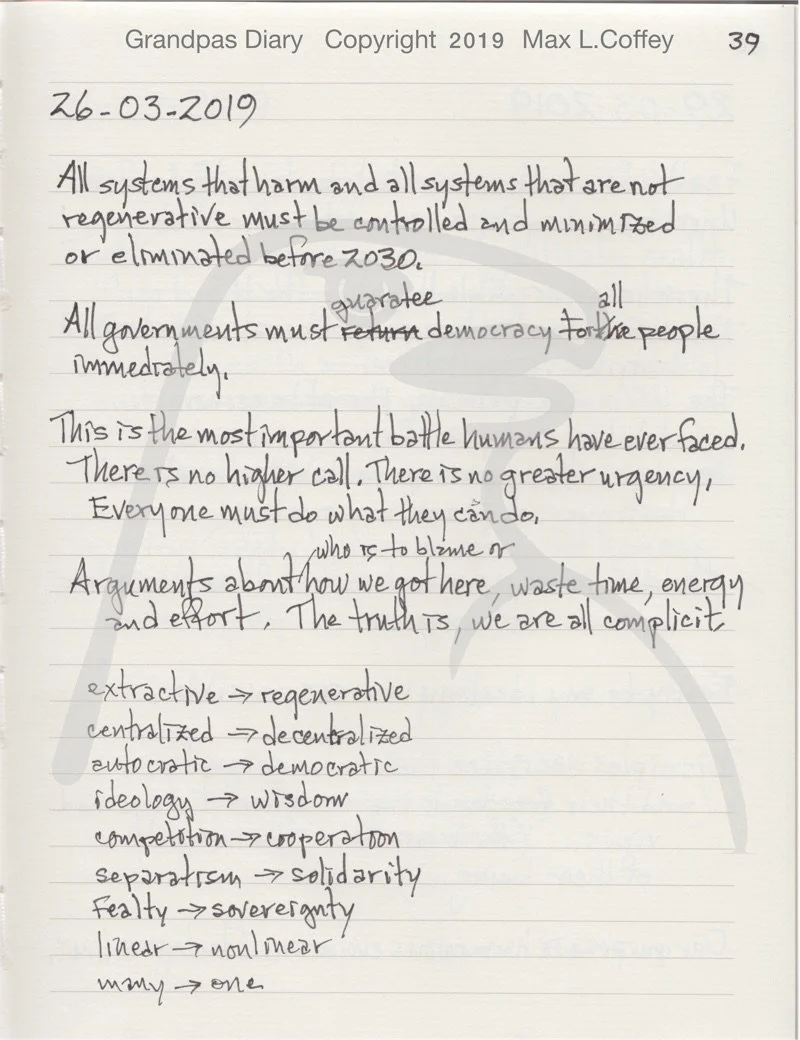 Grandpas Diary Copyright 2019 Max L.Coffey 39
26-03-2019
All systems that harm and all systems that are not
regenerative must be controlled and minimized
or eliminated before 2030.
guaratee all
All governments must return democracy to the people
immediately.
This is the most important battle humans have ever faced.
There is no higher call. There is no greater urgency,
Everyone must do what they can do.
who is to blame or
Arguments about how we got here, waste time, energy
and effort. The truth is, we are all complicit
extractive → regenerative
centralized → decentralized
autocratic → democratic
ideology → wisdom
competition → cooperation
separatism → solidarity
Fealty → sovereignty
linear → nonlinear
many → one